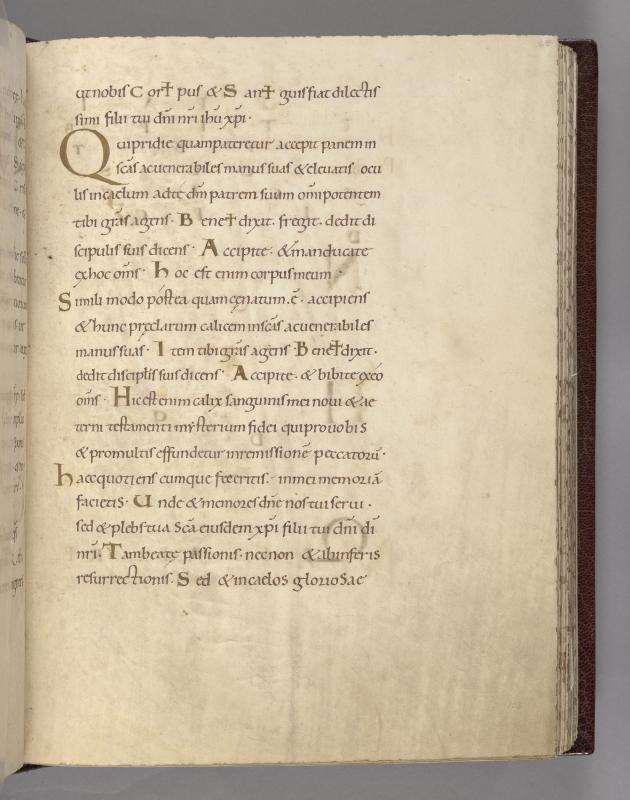 ut nobis Cor✝pus & San✝guis fiat dilecti
simi filii tui dn̄i nr̄i ihū xp̄i.
Qui pridie quam pateretur accepit panem in
sc̄as ac uenerabiles manus suas & eleuatis ocu
lis in caelum ad te dm̄ patrem suum om̄ipotentem
tibi grās agens. Bene✝dixit. fregit. dedit di
scipulis suis dicens. Accipite. & manducate
ex hoc om̄s. hoc est enim corpus meum.
Simili modo postea quam cenatum. ē. accipiens
& hunc preclarum calicem in sc̄as ac uenerabiles
manus suas. Item tibi grās agens Bene✝dixit.
dedit discipl̄is suis dicens. Accipite. & bibite ex eo
om̄s. Hic est enim calix sanguinis mei noui & ae
terni testamenti mysterium fidei qui pro uobis
& pro multis effundetur in remissionē peccatorū.
haec quotiens cumque feceritis. in mei memoriā
facietis. Unde & memores dn̄e nos tui serui.
sed & plebs tua sc̄a eiusdem xp̄i filii tui dn̄i dī
nr̄i. Tam beate passionis. nec non & ab inferis
resurrectionis. Sed & in caelos gloriosae